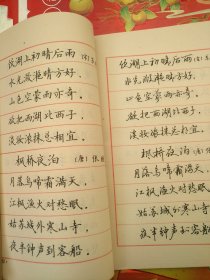 饮湖上初晴后雨 (宋)
水光潋滟晴方好,
山色空蒙雨亦奇。
欲把西湖比西子,
淡妆浓抹总相宜。
枫桥夜泊 (唐) 张
月落乌啼霜满天,
江枫渔火对愁眠。
姑苏城外寒山寺,
夜半钟声到客船。
饮湖上初晴后雨
水光潋滟晴方好
山色空蒙雨亦奇
欲把西湖比西子
淡妆浓抹总相宜
枫桥夜泊 (唐)
月落乌啼霜满天
江枫渔火对愁眠
姑苏城外寒山寺
夜半钟声到客船